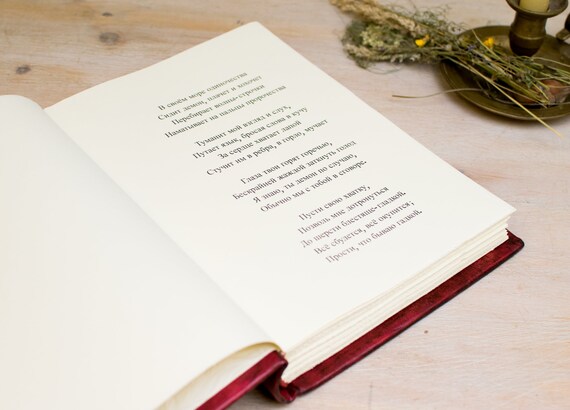 В своём море одиночества
Сидит демон, плачет и хохочет
Перебирает волны-строчки
Наматывает на пальцы пророчества
Туманит мой взгляд и слух,
Путает язык, бросая слова в кучу
За сердце хватает лапой
Стучит им в ребра, в горло, мучает
Глаза твои горят горечью,
Бескрайней жаждой заткнуть голод
Я знаю, ты демон по случаю,
Обычно мы с тобой в сговоре.
Пусти свою хватку,
Позволь мне дотронуться
До шерсти блестяще-гладкой.
Всё сбудется, всё окупится;
Прости, что бываю гадкой.